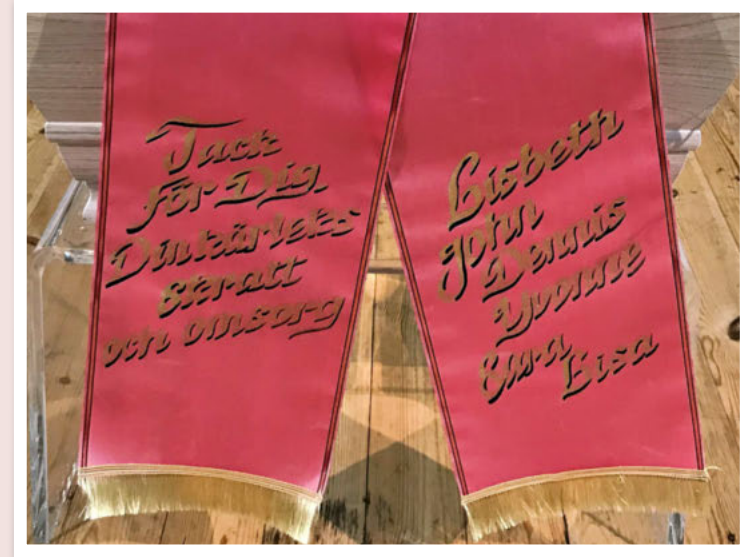 Tack
för Dig
Din kärleks
skratt
och omsorg
Lisbeth
John
Dennis
Yvonne
Lisa